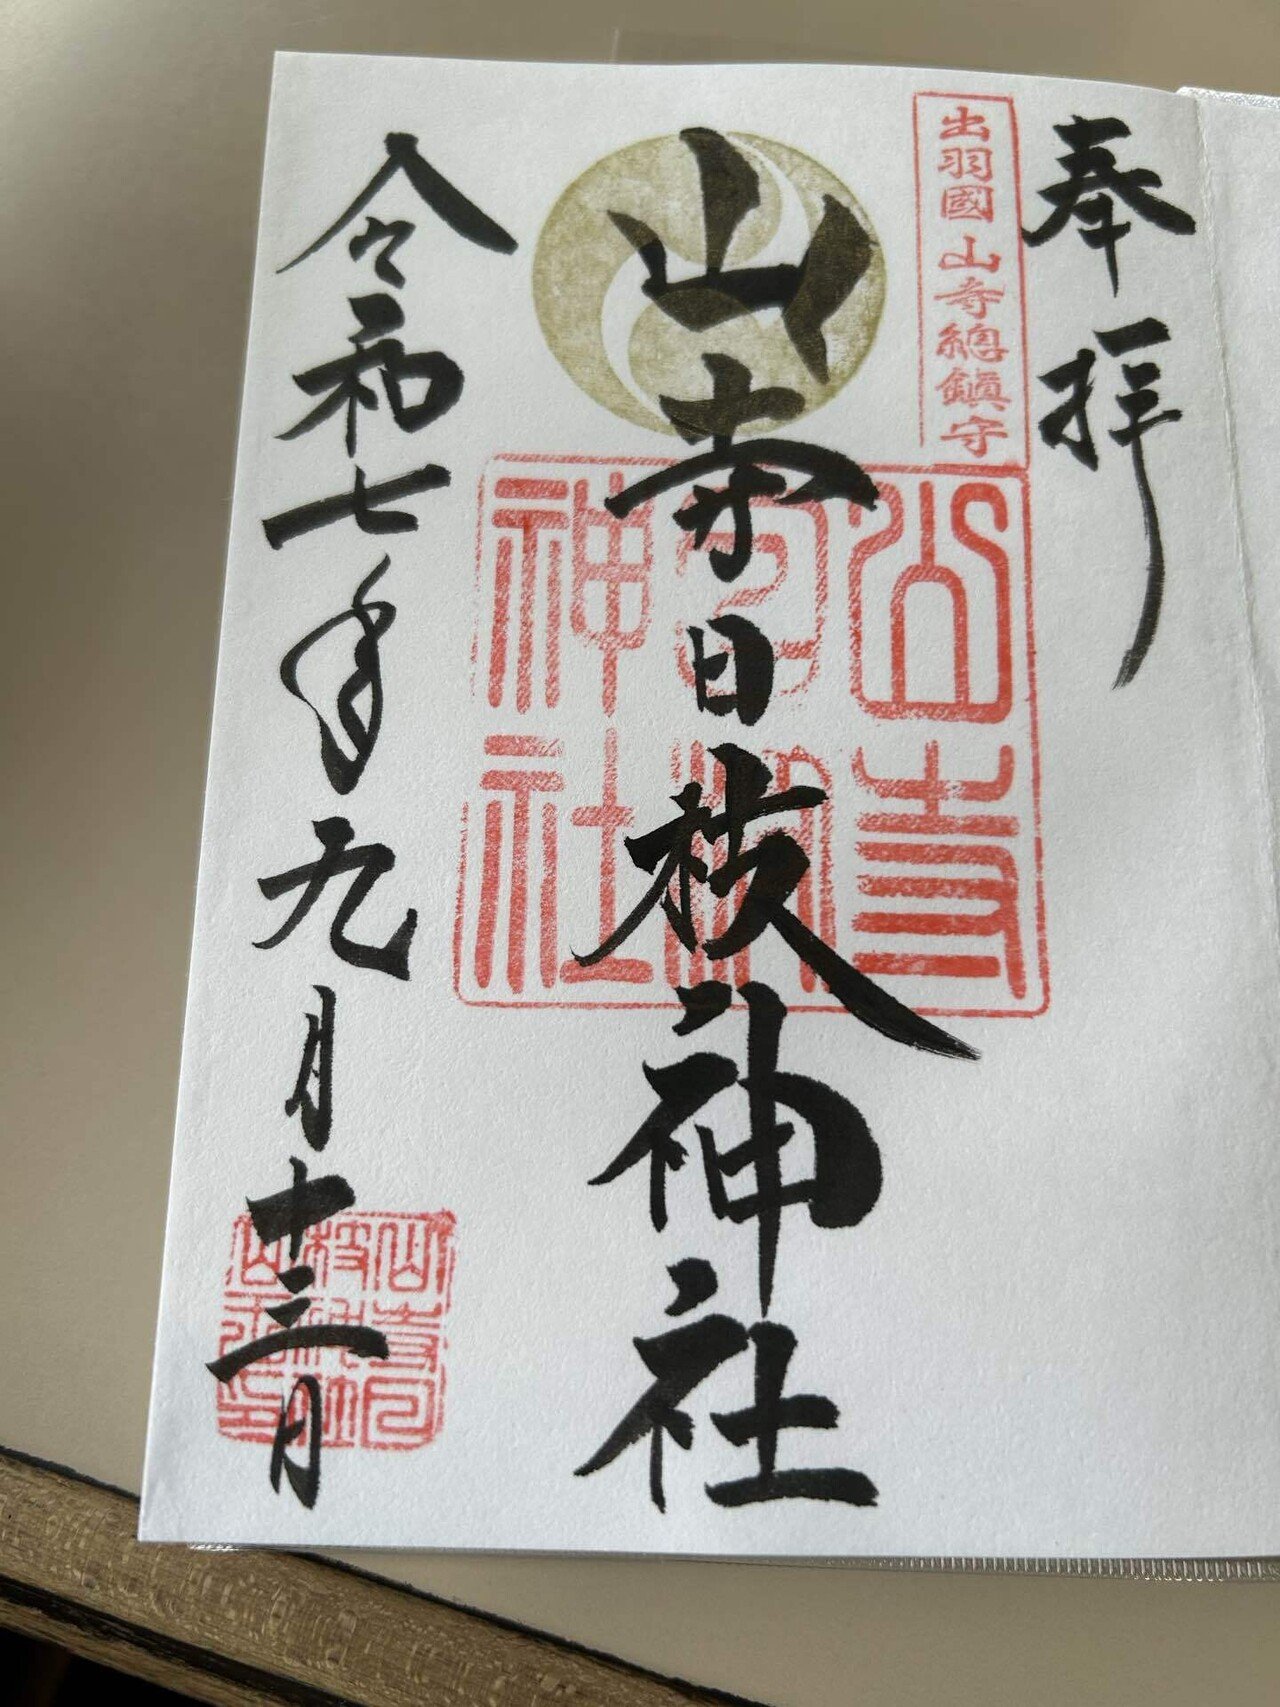 奉拝
出羽國 山寺總鎮守
山寺日枝神社
山寺
日枝
神社
令和七年九月十三日